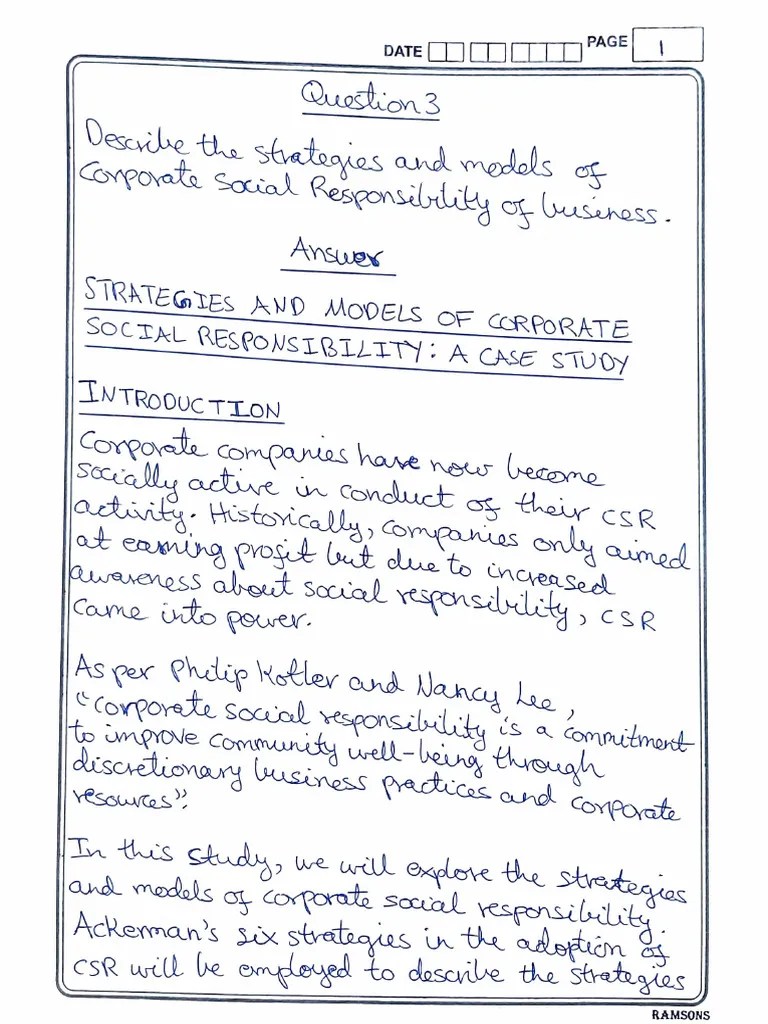 DATE PAGE 1
Question 3
Describe the strategies and models of
Corporate Social Responsibility of business.
Answer
STRATEGIES AND MODELS OF CORPORATE
SOCIAL RESPONSIBILITY: A CASE STUDY
INTRODUCTION
Corporate companies have now become
socially active in conduct of their CSR
activity. Historically, companies only aimed
at earning profit but due to increased
awareness about social responsibility, CSR
came into power.
As per Philip Kotler and Nancy Lee,
"Corporate social responsibility is a commitment
to improve community well-being through
discretionary business practices and corporate
resources".
In this study, we will explore the strategies
and models of corporate social responsibility.
Ackerman's six strategies in the adoption of
CSR will be employed to describe the strategies
RAMSONS